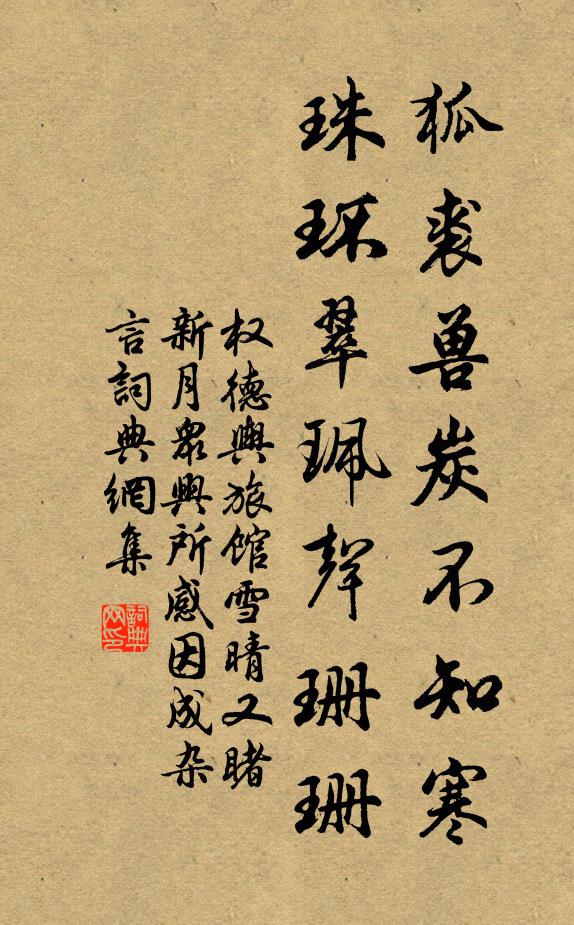 狐裘兽炭不知寒
珠环翠珮聲珊珊
权德輿旅館雪晴又睹
新月眾興所感因成杂
言詞典網集
詞典网印